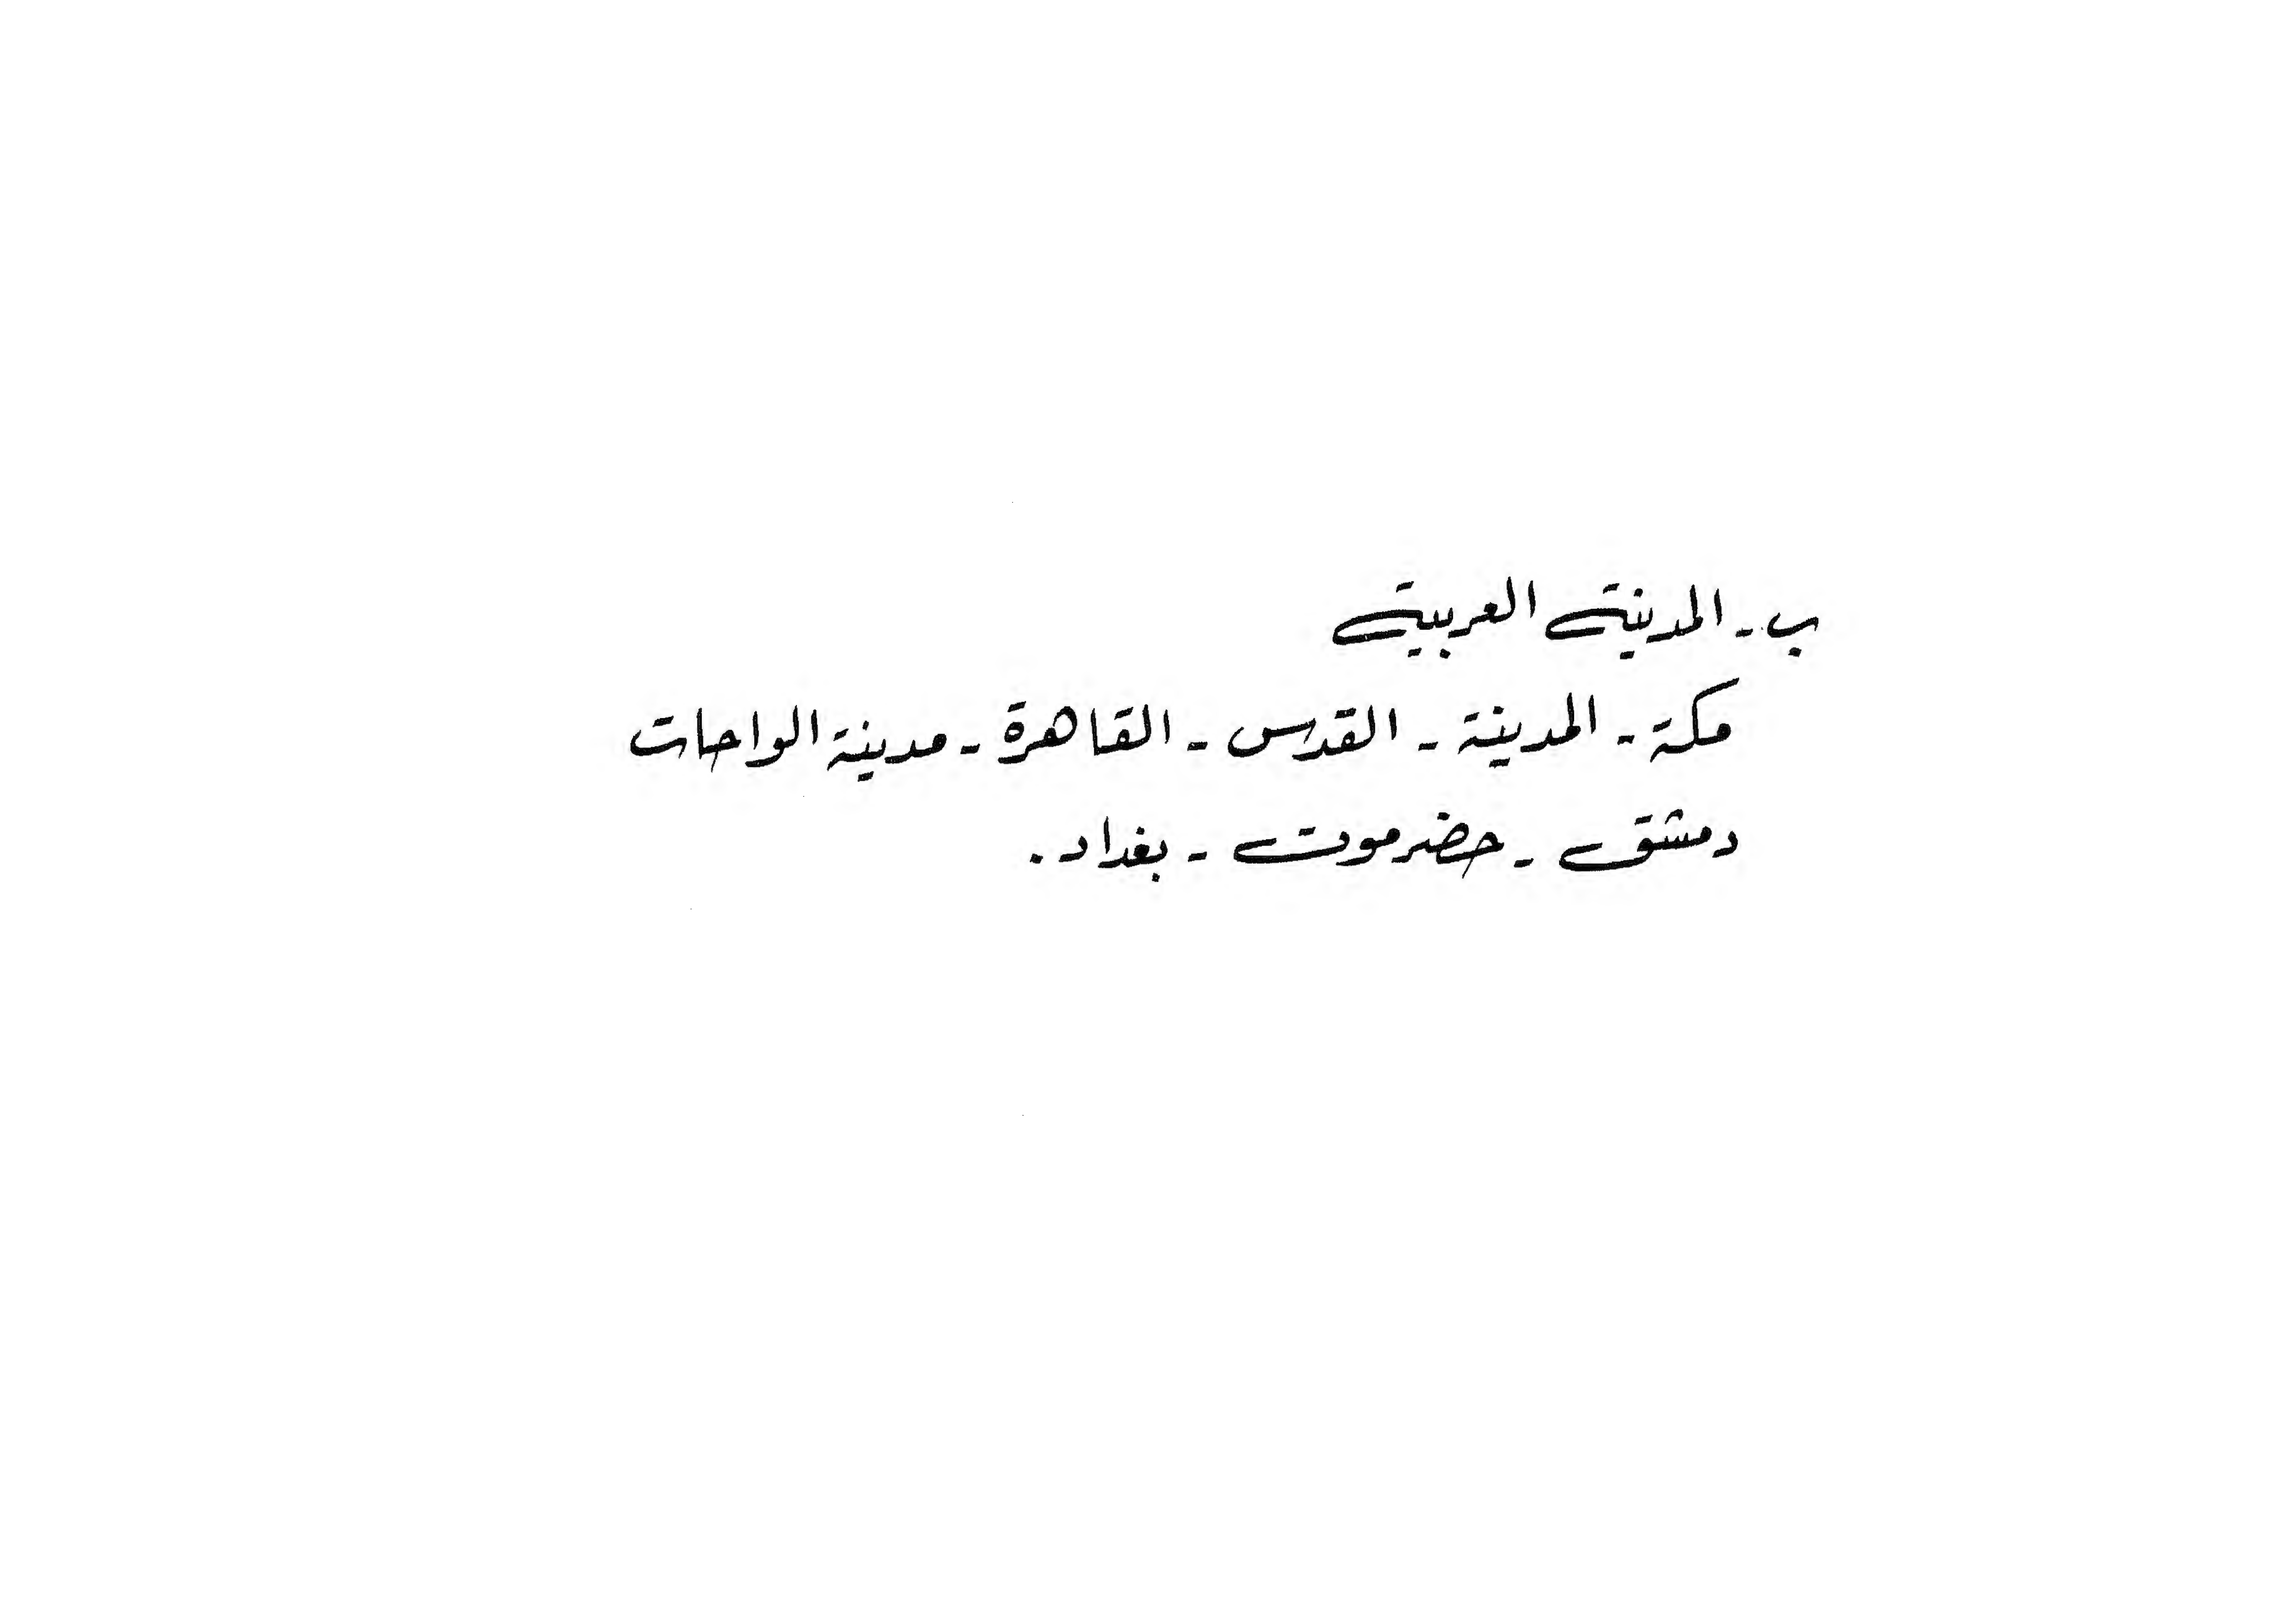 ب - المدينة العربية
مكة - المدينة - القدس - القاهرة - مدينة الواحات
دمشق - حضرموت - بغداد .